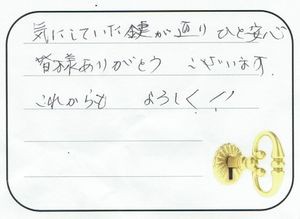 気にしていた鍵が直り ひと安心
皆様ありがとう ございます
これからも よろしく!!